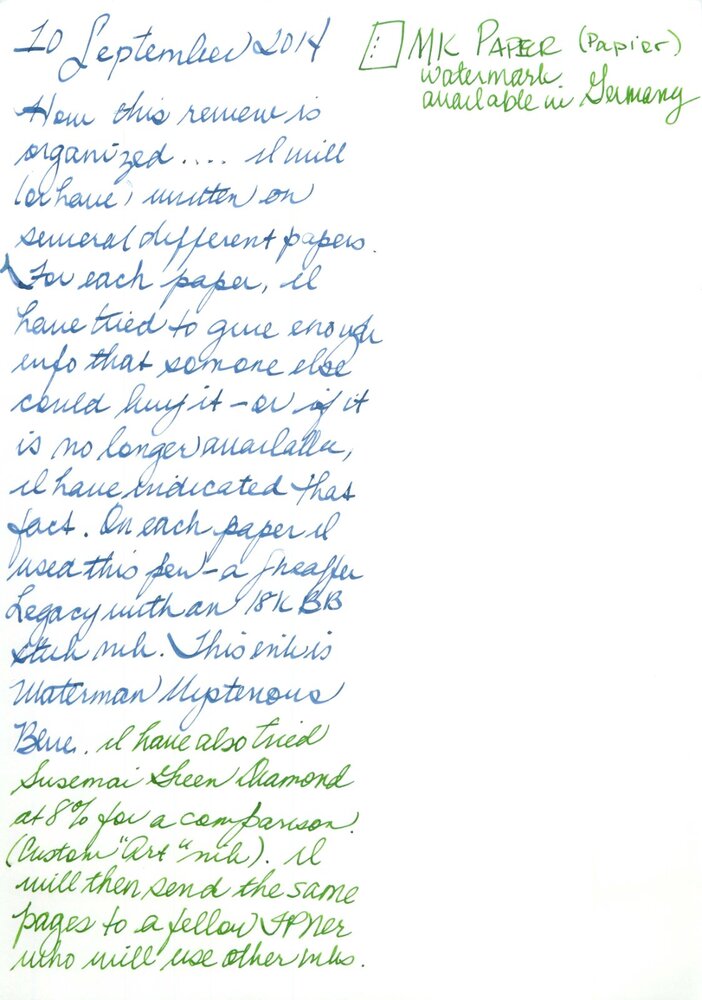 10 September 2014
MK PAPER (Papier)
watermark
available in Germany
How this review is
organized.... I will
(or have) written on
several different papers.
For each paper, I
have tried to give enough
info that somone else
could buy it - or if it
is no longer available,
I have indicated that
fact. On each paper I
used this pen - a Sheaffer
Legacy with an 18K BB
stub nib. This ink is
Waterman Mysterious
Blue. I have also tried
Susemai Green Diamond
at 8% for a comparison.
(Custom "Art" nib). I
will then send the same
pages to a fellow FPNer
who will use other inks.